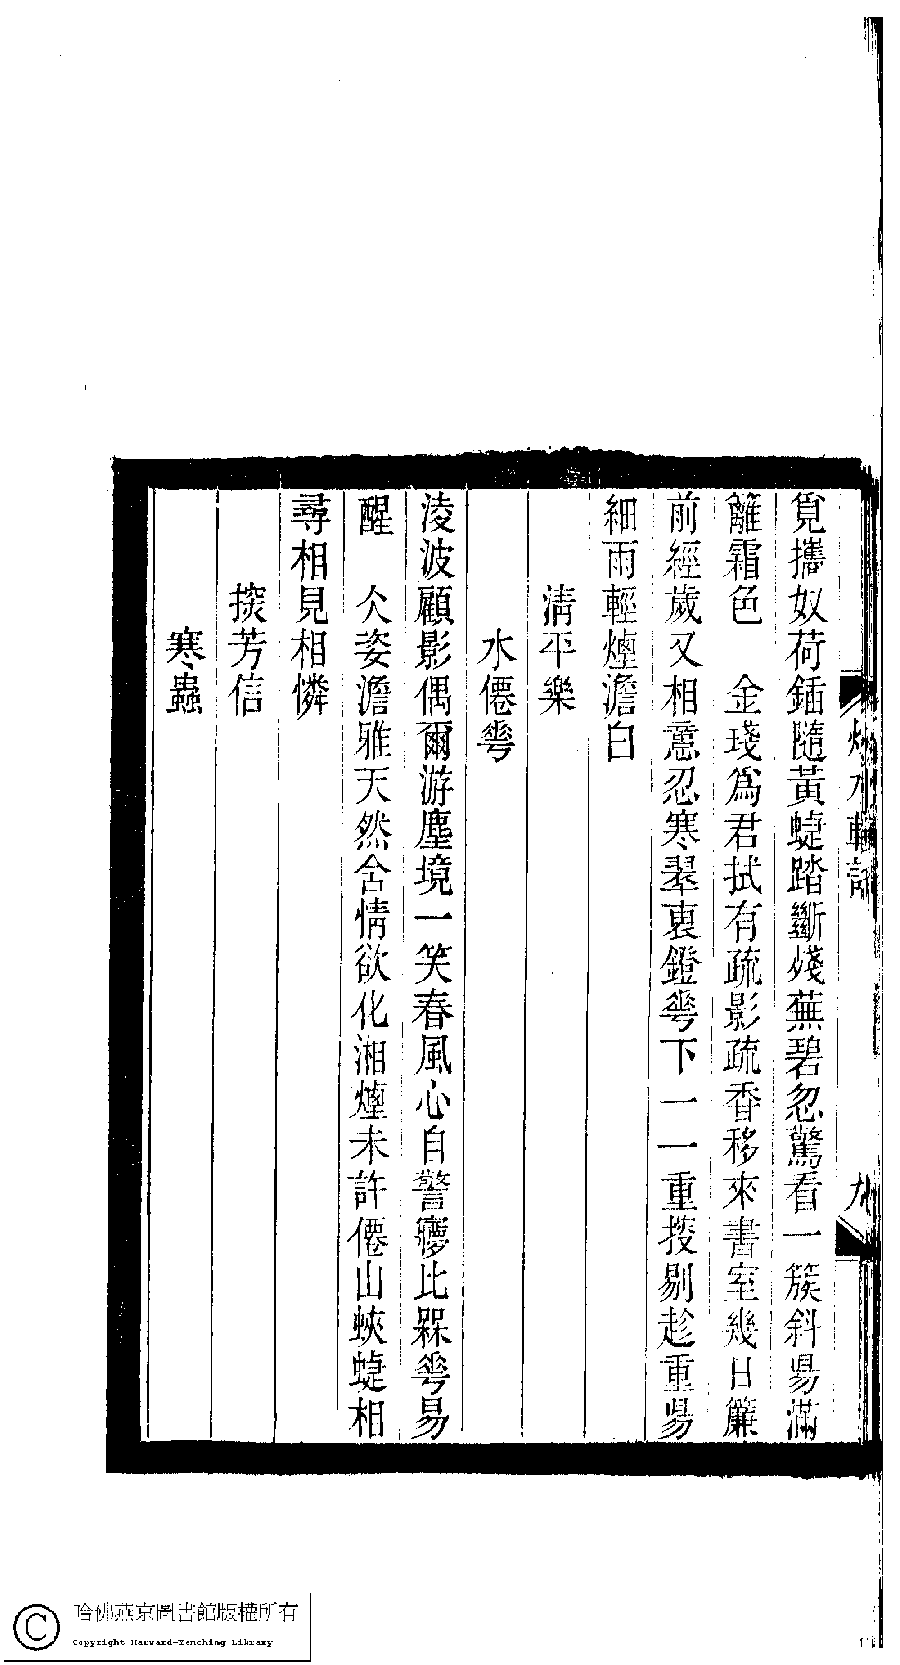 覓攜奴荷鍤隨黃蜨踏斷殘蕪碧忽驚看一簇斜昜滿
籬霜色　金琖爲君拭有疏影疏香移來書室幾日簾
前經歲又相憶忍寒翠裏鐙蕐下一一重挍剔趁重昜
細雨輕煙澹白
清平樂
水僊蕐
淩波顧影偶爾游塵境一笑春風心自警㝱比槑蕐易
醒　仌姿澹雅天然含情欲化湘煙未許僊山蛺蜨相
尋相見相憐
探芳信
寒蟲
九
哈佛燕京圖書館版權所有
Copyright Harvard-Yenching Library